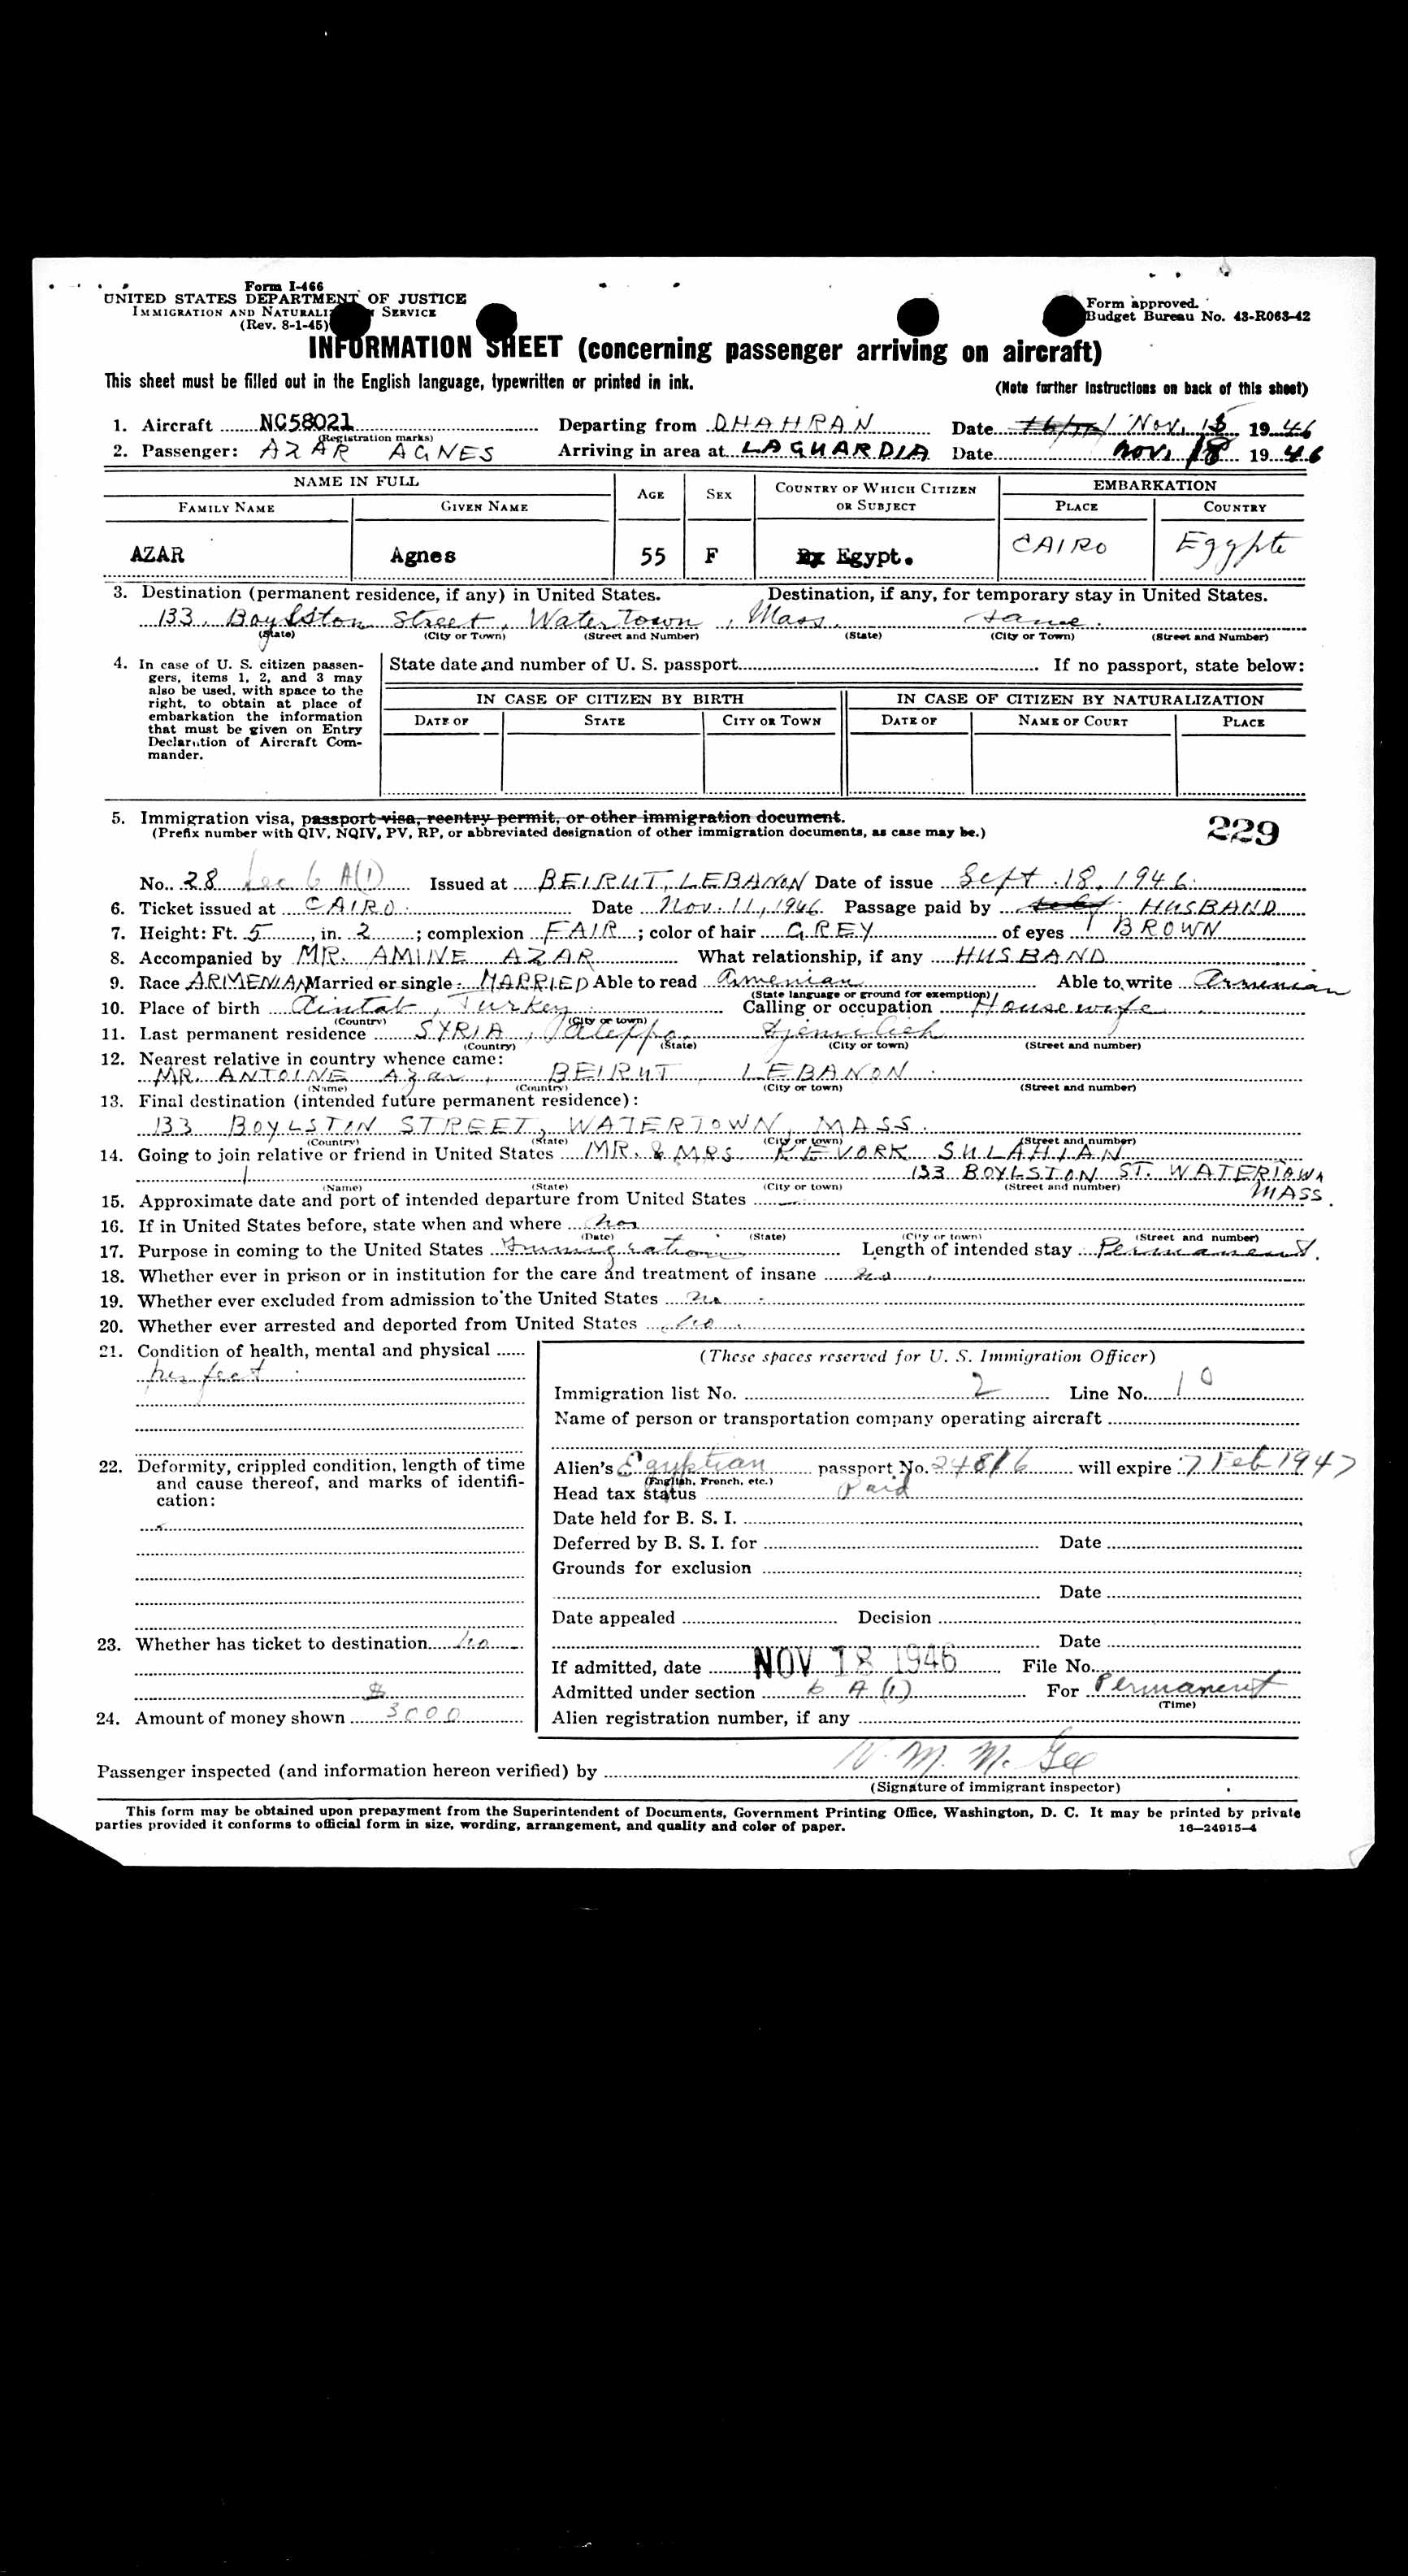 Form I-466
UNITED STATES DEPARTMENT OF JUSTICE
IMMIGRATION AND NATURALI SERVICE
(Rev. 8-1-45)
Form approved.
Budget Bureau No. 43-R063-42
INFORMATION SHEET (concerning passenger arriving on aircraft)
This sheet must be filled out in the English language, typewritten or printed in ink.
(Note further instructions on back of this sheet)
1. Aircraft NC58021 Departing from DHAHRAN Date Nov. 15 1946
(Registration marks)
2. Passenger: AZAR AGNES Arriving in area at LAGUARDIA Date Nov. 18 1946
NAME IN FULL AGE SEX COUNTRY OF WHICH CITIZEN OR SUBJECT EMBARKATION
FAMILY NAME GIVEN NAME PLACE COUNTRY
AZAR Agnes 55 F Egypt. CAIRO Egypte
3. Destination (permanent residence, if any) in United States. Destination, if any, for temporary stay in United States.
133. Boylston Street, Watertown, Mass. same.
(State) (City or Town) (Street and Number) (State) (City or Town) (Street and Number)
4. In case of U. S. citizen passengers, items 1, 2, and 3 may also be used, with space to the right, to obtain at place of embarkation the information that must be given on Entry Declaration of Aircraft Commander.
State date and number of U. S. passport If no passport, state below:
IN CASE OF CITIZEN BY BIRTH IN CASE OF CITIZEN BY NATURALIZATION
DATE OF STATE CITY OR TOWN DATE OF NAME OF COURT PLACE
5. Immigration visa, passport visa, reentry permit, or other immigration document.
(Prefix number with QIV, NQIV, PV, RP, or abbreviated designation of other immigration documents, as case may be.)
229
No. 28 Sec 6 A(1) Issued at BEIRUT, LEBANON Date of issue Sept. 18. 1946.
6. Ticket issued at CAIRO. Date Nov. 11, 1946 Passage paid by HUSBAND
7. Height: Ft. 5, in. 2; complexion FAIR; color of hair GREY of eyes BROWN
8. Accompanied by MR. AMINE AZAR What relationship, if any HUSBAND
9. Race ARMENIAN Married or single: MARRIED Able to read Armenian Able to write Armenian
(State language or ground for exemption)
10. Place of birth Aintab, Turkey Calling or occupation Housewife
(Country) (City or town)
11. Last permanent residence SYRIA, Aleppo,
(Country) (State) (City or town) (Street and number)
12. Nearest relative in country whence came:
MR. ANTOINE Azar, BEIRUT LEBANON.
(Name) (Country) (City or town) (Street and number)
13. Final destination (intended future permanent residence):
133 BOYLSTIN STREET, WATERTOWN, MASS.
(Country) (State) (City or town) (Street and number)
14. Going to join relative or friend in United States MR. & MRS KEVORK SULAHIAN
133 BOYLSTON ST. WATERTOWN MASS.
(Name) (State) (City or town) (Street and number)
15. Approximate date and port of intended departure from United States
16. If in United States before, state when and where
(Date) (State) (City or town) (Street and number)
17. Purpose in coming to the United States Immigration Length of intended stay Permanent.
18. Whether ever in prison or in institution for the care and treatment of insane no
19. Whether ever excluded from admission to the United States no
20. Whether ever arrested and deported from United States no
21. Condition of health, mental and physical
perfect
(These spaces reserved for U. S. Immigration Officer)
Immigration list No. 2 Line No. 10
Name of person or transportation company operating aircraft
22. Deformity, crippled condition, length of time and cause thereof, and marks of identification:
Alien's Egyptian passport No. 24816 will expire 7 Feb 1947
(English, French, etc.)
Head tax status Paid
Date held for B. S. I.
Deferred by B. S. I. for Date
Grounds for exclusion
Date
Date appealed Decision
23. Whether has ticket to destination no
Date
If admitted, date NOV 18 1946 File No.
Admitted under section 6 A (1) For Permanent
(Time)
24. Amount of money shown $ 3000
Alien registration number, if any
Passenger inspected (and information hereon verified) by W. M. McGee
(Signature of immigrant inspector)
This form may be obtained upon prepayment from the Superintendent of Documents, Government Printing Office, Washington, D. C. It may be printed by private
parties provided it conforms to official form in size, wording, arrangement, and quality and color of paper.
16—24915-4